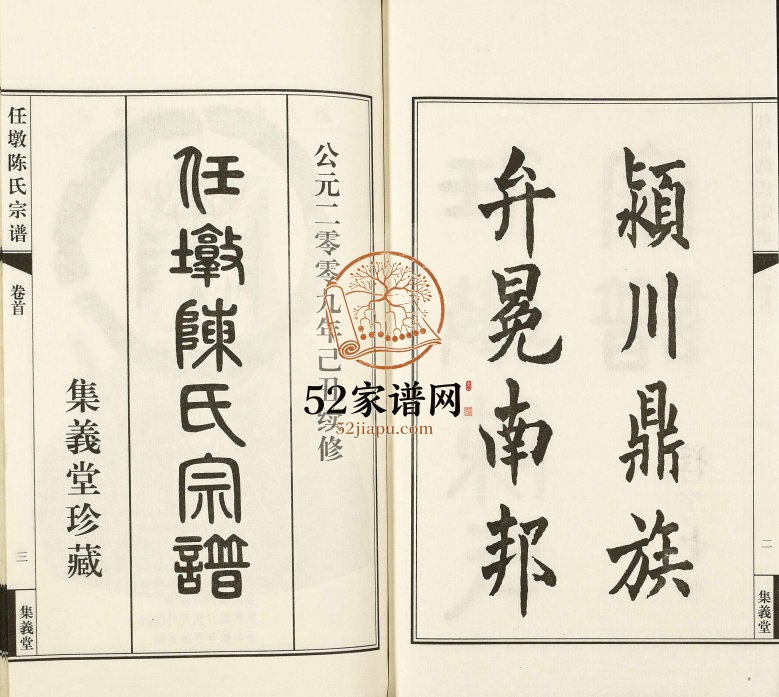 潁川鼎族
弁冕南邦
二
集義堂
公元二零零九年己丑续修
任墩陳氏宗譜
集義堂珍藏
任墩陈氏宗谱
卷首
三
集義堂
52家谱网
52jiapu.com